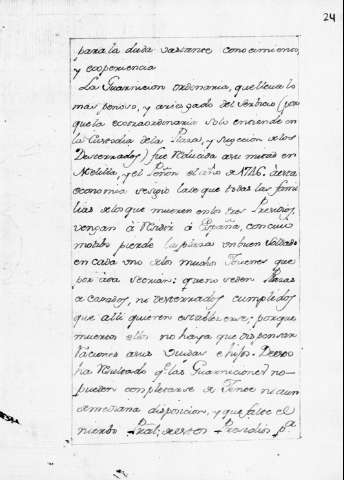 24
para la duda bastante conocimiento,
y esperiencia
La Guarnicion ordinaria, que lleva lo
mas penoso, y ariesgado del servicio (por
que la extraordinaria solo entiende en
la Custodia de la Plaza, y sugecion de los
Desterrados) fue reducida a su mitad en
Melilla, y el Peñon el año de 1746. à esta
economia se sigio la de que todas las fami
lias de los que mueren en los tres Presidios,
vengan à Residir à España, con cuio
motibo pierde la plaza un buen soldado
en cada uno de los muchos Jovenes que
por ida se crian: que no se den Plazas
a casados, ni desterrados cumplidos
que alli quieren establecerse; porque
muertos ellos no haya que dispensar
raciones a sus Viudas e hijos. De esto
ha resultado q.e las Guarniciones no
pueden completarse de Gente ni aun
de mediana disposicion, y que falte el
nierbo Pral; de estos Presidios p.a